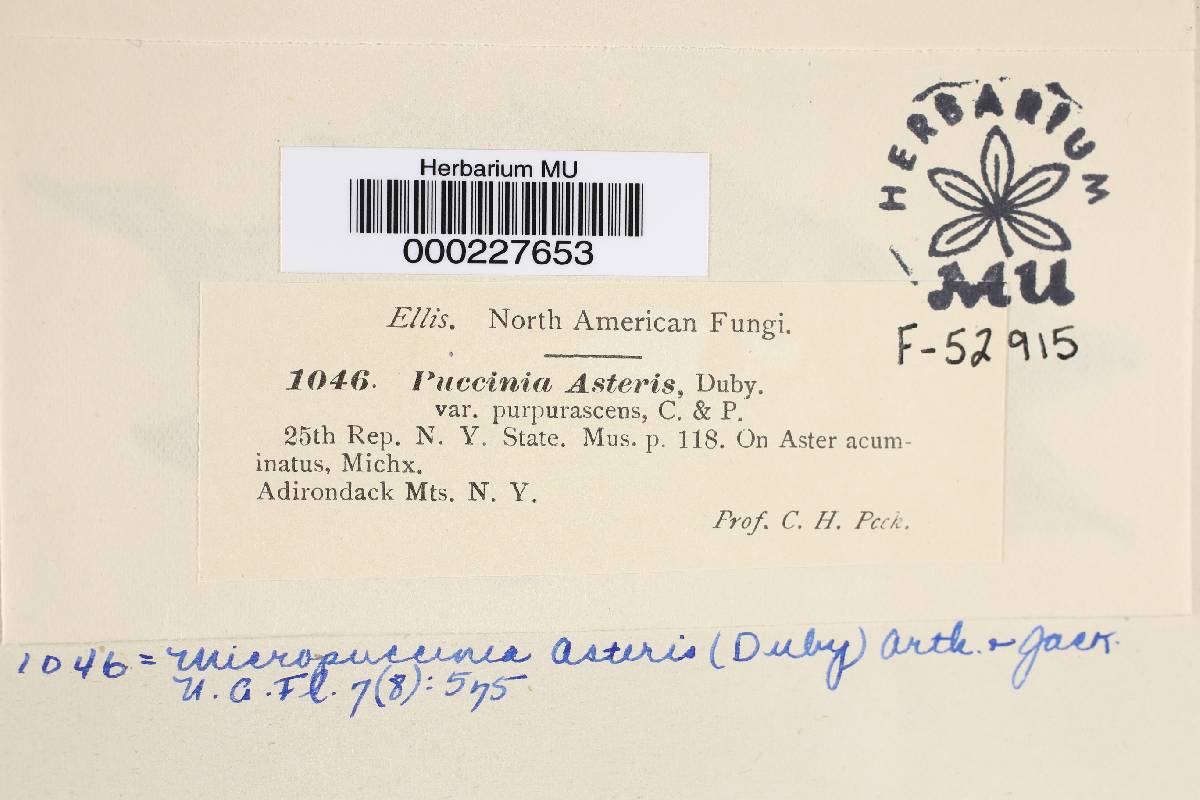 HERBARIUM
MU
F-52915
Herbarium MU
000227653
Ellis. North American Fungi.
1046. Puccinia Asteris, Duby.
var. purpurascens, C. & P.
25th Rep. N. Y. State. Mus. p. 118. On Aster acum-
inatus, Michx.
Adirondack Mts. N. Y.
Prof. C. H. Peck.
1046 = Micropuccinia Asteris (Duby) Arth. & Jack.
N. A. Fl. 7(8): 575